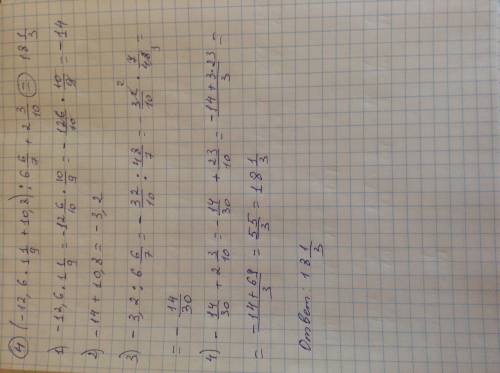 ④ (-12,6 · 1 1/9 + 10,8) : 6 6/7 + 2 3/10 = 18 1/3
1) -12,6 · 1 1/9 = -12 6/10 · 10/9 = - 126/10 · 10/9 = -14
2) -14 + 10,8 = -3,2
3) -3,2 : 6 6/7 = - 32/10 : 48/7 = 32 2/10 · 7/48 3 =
= - 14/30
4) - 14/30 + 2 3/10 = - 14/30 + 23/10 = -14 + 3·23/3 =
= -14 + 69/3 = 55/3 = 18 1/3
Ответ: 18 1/3